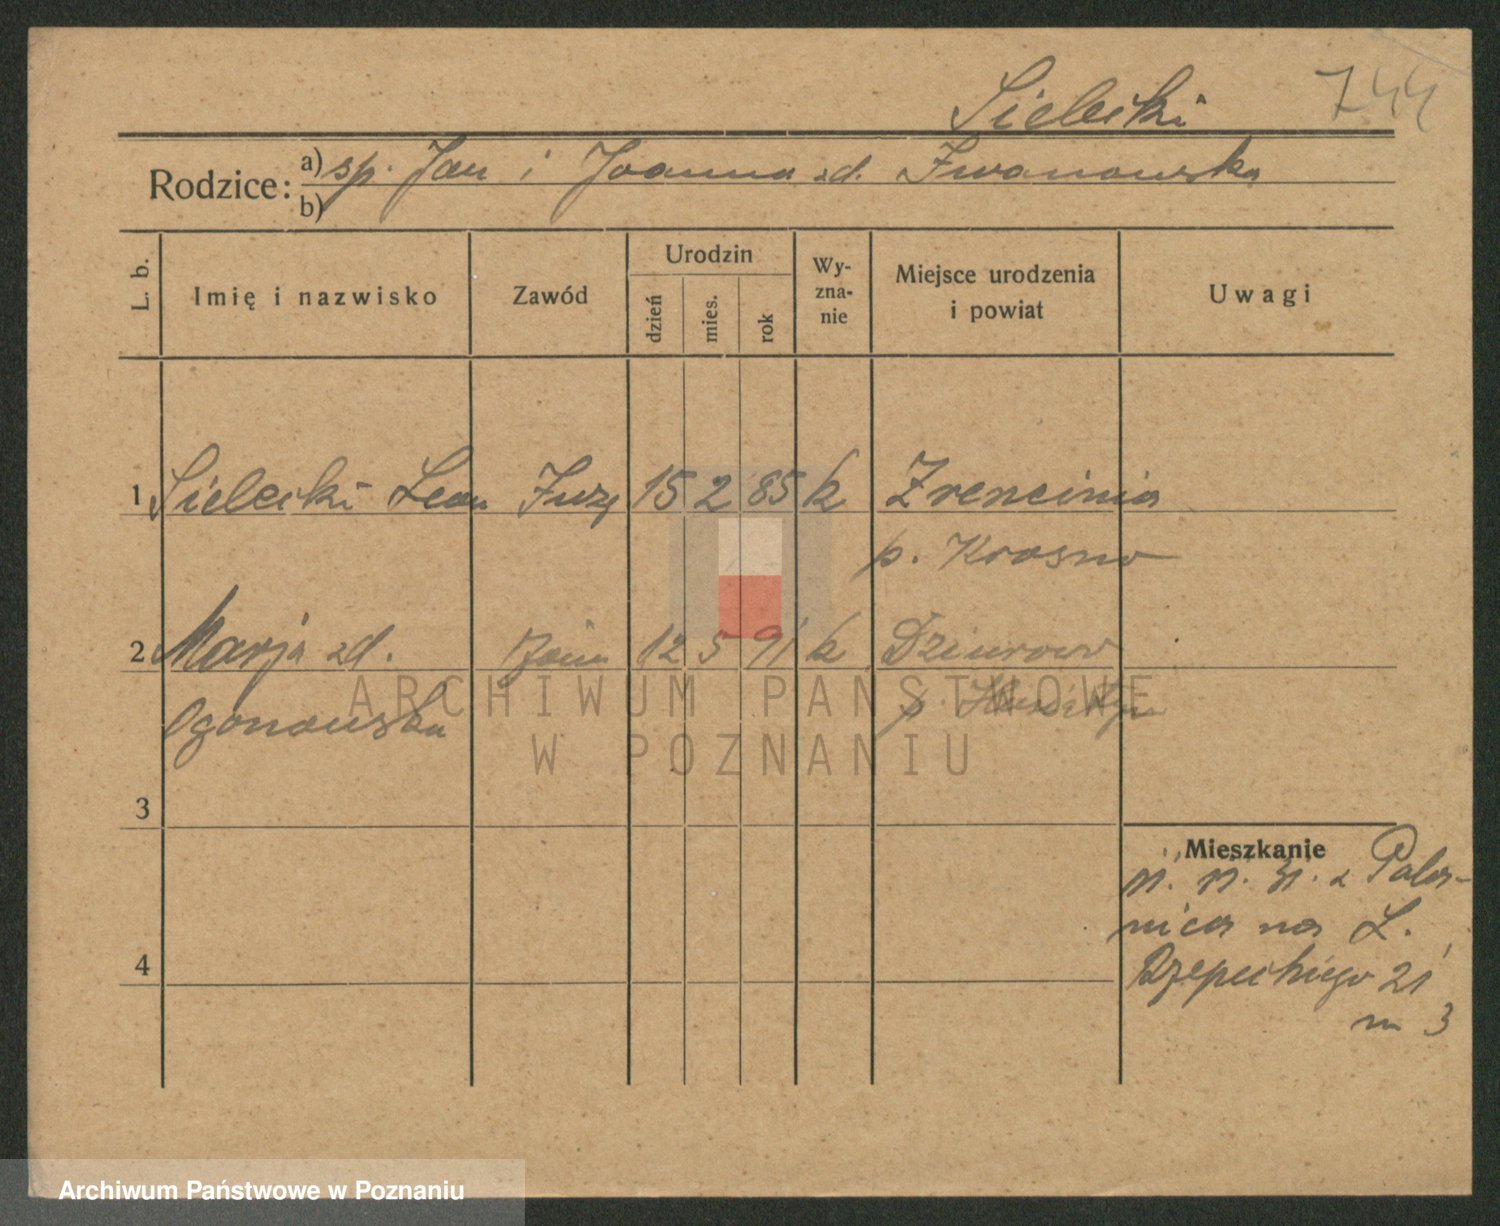 744
Sielecki
Rodzice: a) sp. Jan i Joanna zd. Iwanowska
b)
L. b.
Imię i nazwisko
Zawód
Urodzin
dzień
mies.
rok
Wy-
zna-
nie
Miejsce urodzenia
i powiat
Uwagi
1 Sielecki Leon Inży 15 2 85 k Zrencinia
p. Krosno
2 Marja zd. 12 5 91 k Dziurow
Ogonowska p.
3
4
Mieszkanie
z Palar-
nica na L.
Rzepeckiego 21
m 3
ARCHIWUM PAŃSTWOWE
W POZNANIU
Archiwum Państwowe w Poznaniu